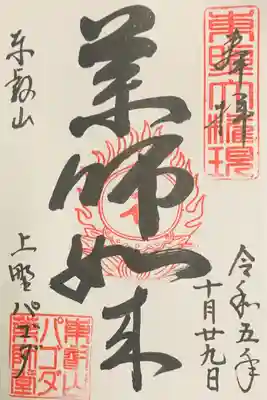 奉拝
東照大権現
令和五年
十月廿九日
薬師如来
東叡山
上野パゴダ
東叡山
パゴダ
薬師堂